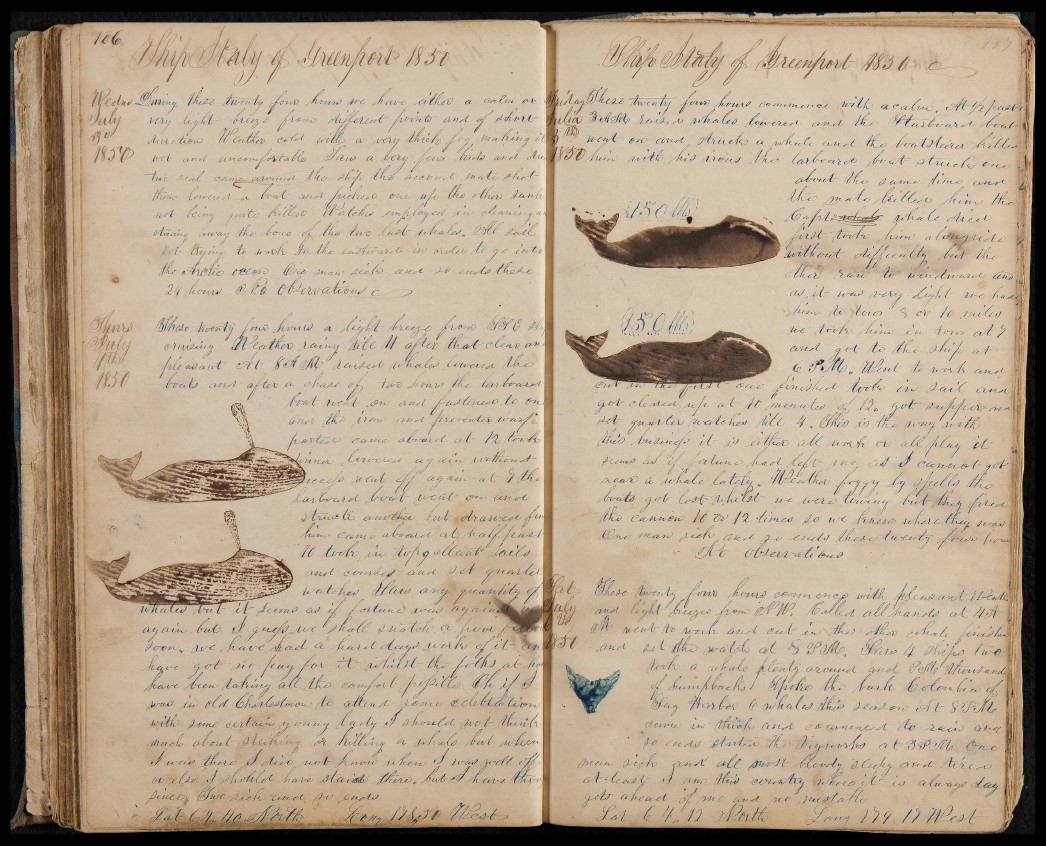 106
Ship Italy of Greenport 1850
Wednes
July
3d
1850
During these twenty four hours we have either a calm or
very light breeze from different points and of short
duration Weather cold with a very thick fog making it
wet and uncomfortable Saw a very few birds and
two seal came around the ship the second mate shot
them lowered a boat and picked one up the other sunk
not being quite killed Watches employed in cleaning
stowing away the bone of the two last whales. All sail
set trying to work to the eastward in order to go into
the Arctic ocean One man sick and so ends these
24 hours No Observations
Thurs
July
4th
1850
These twenty four hours a light breeze from NNE
cruising Weather rainy till 11 after that clear and
pleasant At 8 AM raised whales lowered the
boats and after a chase of two hours the larboard
boat went on and fastened to one
and the iron and preventer warp
parted came aboard at 12 took
dinner lowered again without
success went off again at 7 the
larboard boat went on and
struck another but drawed from
him came aboard at half past
10 took in topgallant sails
and courses and set quarter
watches Saw any quantity of
whales but it seems as if fortune was against us
again but I guess we shall snatch a few
soon, we have had a hard days work of it
have got no
have been taking all the comfort Oh if I
was in old Charlestown to attend some celebration
with some certain young lady I should not think
much about striking or killing a whale but when
I was there I did not know when I was well off
or else I should have staid there, but I have
since Two sick and so ends
Lat 64, 40 North Long West
Ship Italy of Greenport 1850
Friday
1850
These twenty four hours commence with a calm. At ½ past
3 AM raised whales lowered and the Starboard boat
went on and struck a whale and the boatsteerer killed
him with his irons the larboard boat struck one
about the same time and
the mate killed him the
Capts whale died
first took him alongside
without difficulty but the
other ran to windward and
as it was very light we had
him to tow 8 or 10 miles
we took him in tow at 7
and got to the ship at
6 P.M. Went to work and
150 blls
150 blls
cut in the first one finished took in sail and
got cleared up at 10 minutes of 12. got supper and
set quarter watches till 4. This is the way with
this business it is either all work or all play it
seems as if fortune had left me as I cannot get
near a whale lately. Weather foggy by spells the
boats got lost whilst we were towing but they fired
the cannon 10 or 12 times so we knew where they was
One man sick and so ends these twenty four hours
No observations
Sat
July
These twenty four hours commence with pleasant weather
and light breezes from SW. Called all hands at 4 A
M went to work and cut in the other whale finished
and set the watch at 8 P.M. Saw 4 ships two
took a whale plenty around and thousand
of humpbacks Spoke the bark Columbia of
Sag Harbor 6 whales this season At 8 P.M.
came in thick and commenced to rain and
so ends started the tryworks at 3 P.M. One
man sick and all most bloody sleepy and tired
at least I am this country where it is always day
gets ahead of me and no mistake
Lat 64, 17 North Long 179, 17 West